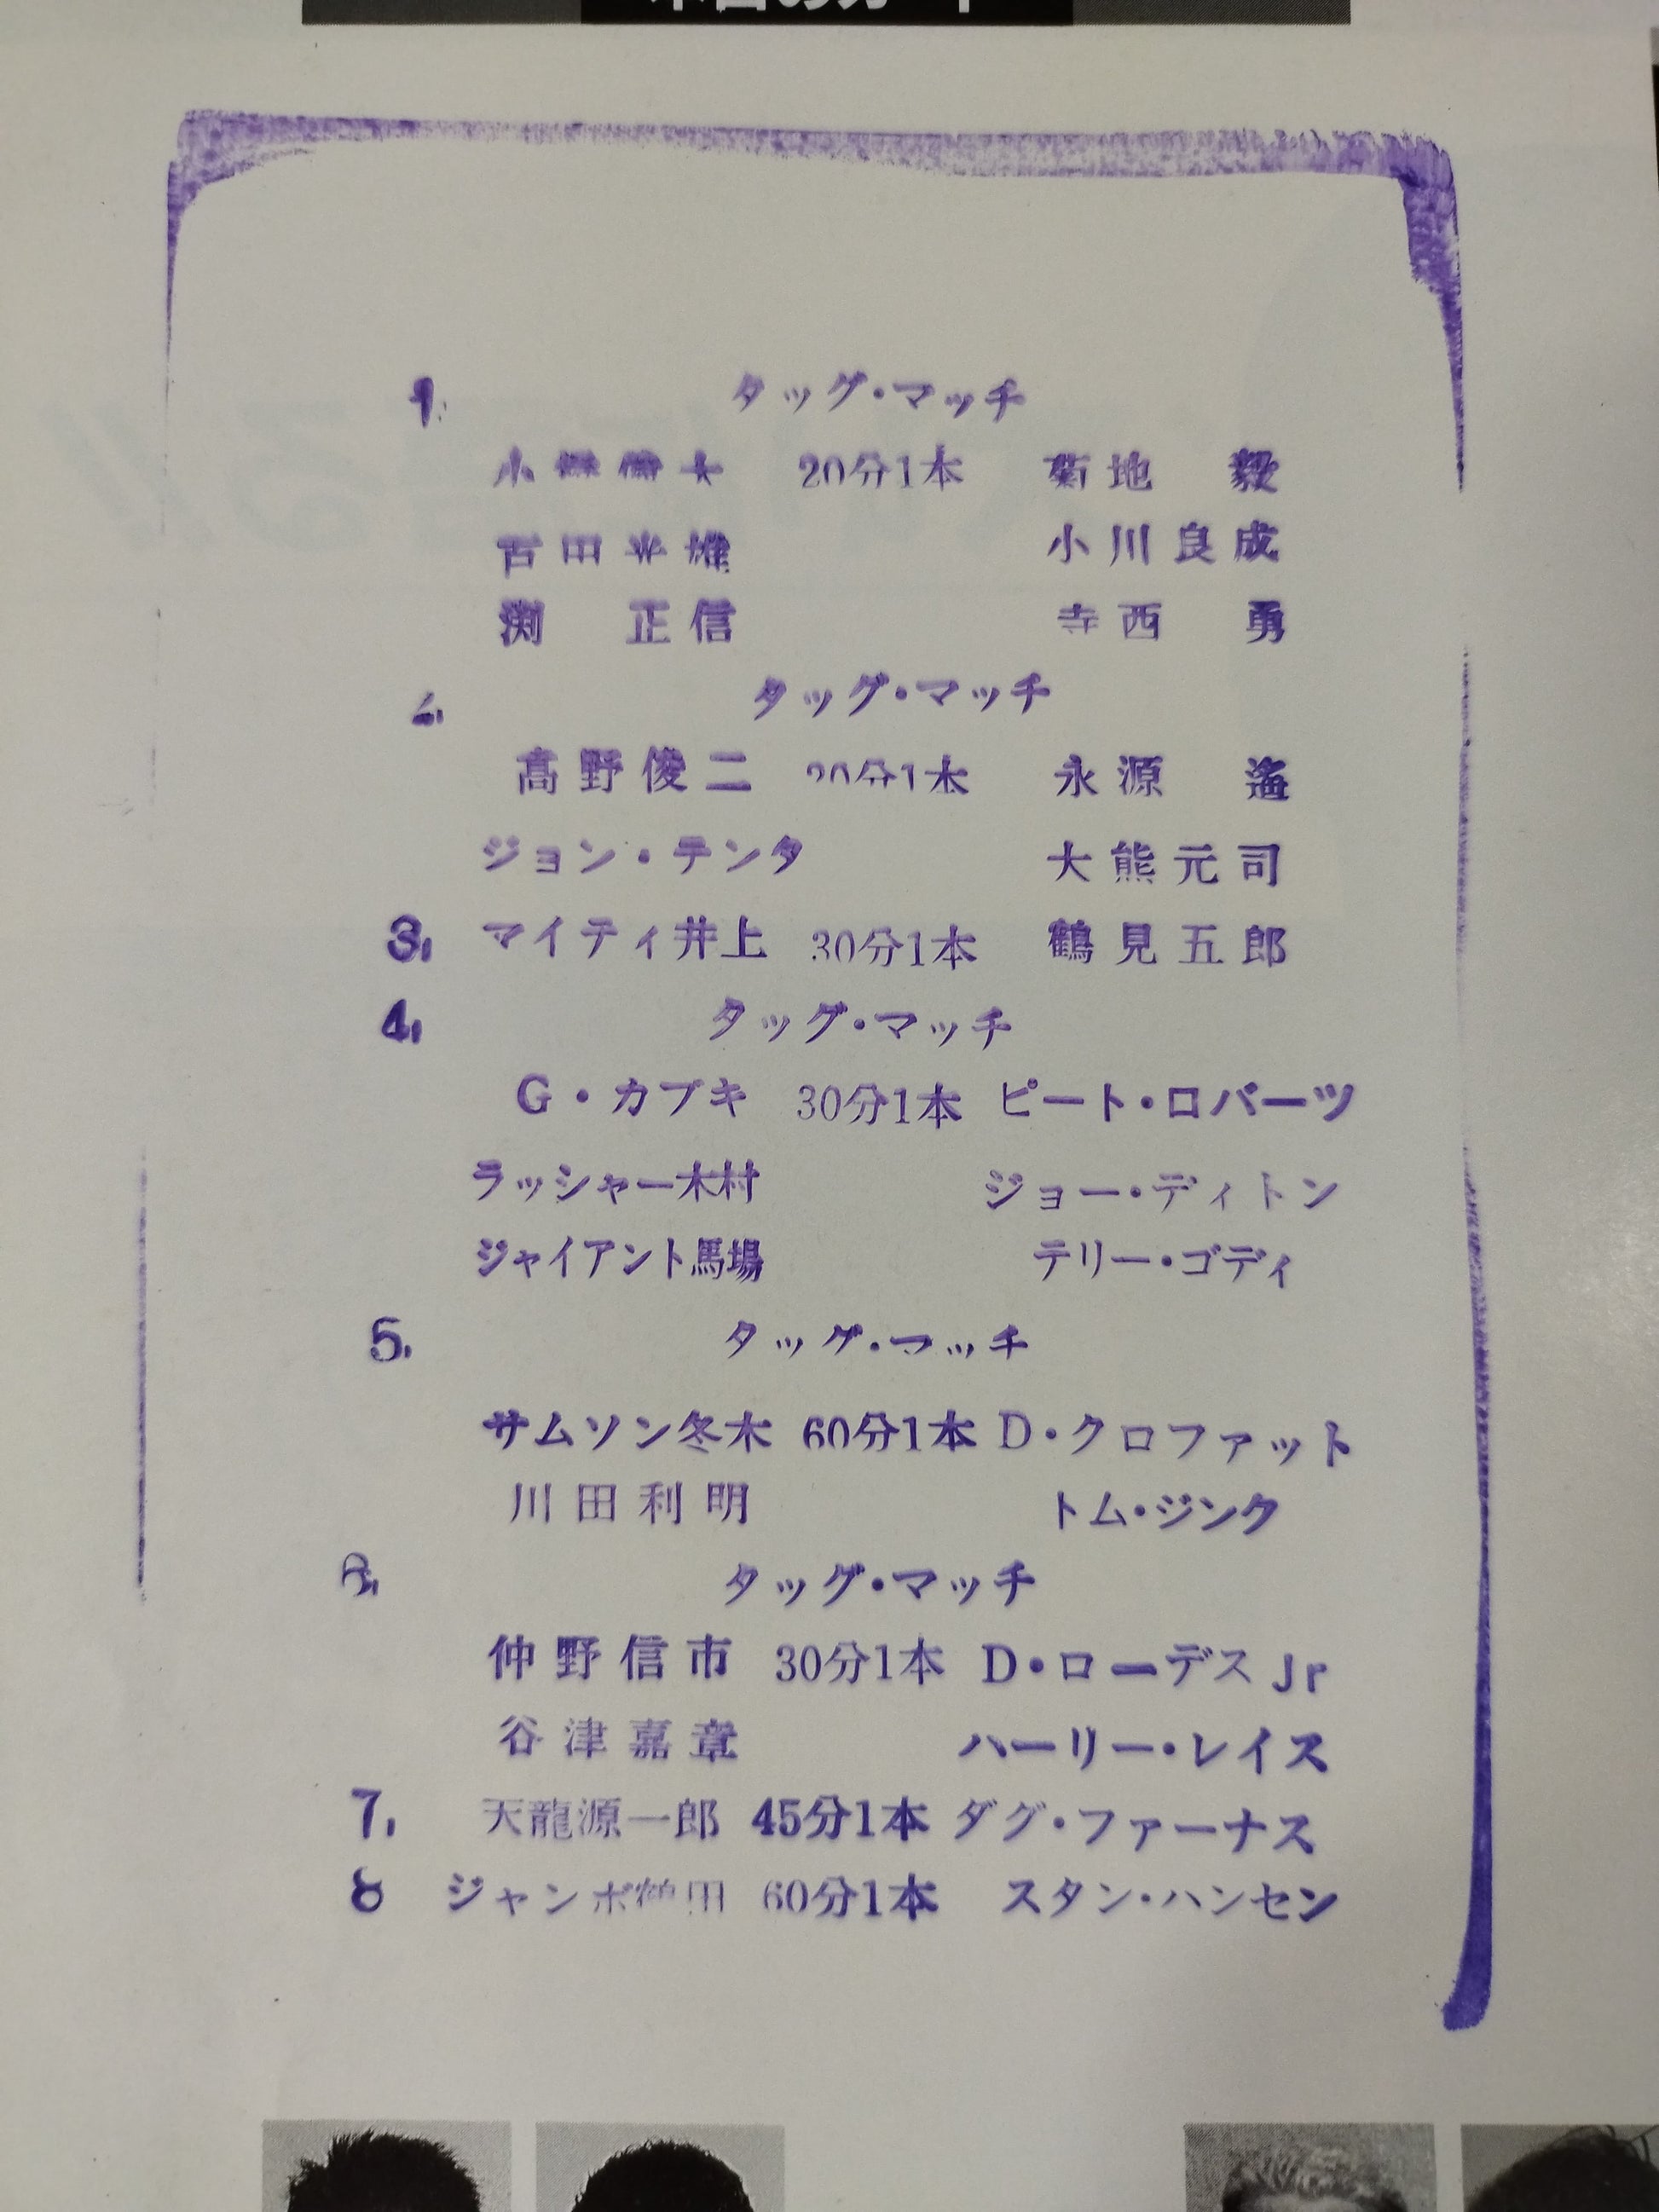 本日のカード
1. タッグ・マッチ
小 20分1本 菊地 毅
百田光雄 小川良成
渕 正信 寺西 勇
2. タッグ・マッチ
高野俊二 20分1本 永源 遙
ジョン・テンタ 大熊元司
3. マイティ井上 30分1本 鶴見五郎
4. タッグ・マッチ
G・カブキ 30分1本 ピート・ロバーツ
ラッシャー木村 ジョー・ディトン
ジャイアント馬場 テリー・ゴディ
5. タッグ・マッチ
サムソン冬木 60分1本 D・クロファット
川田利明 トム・ジンク
6. タッグ・マッチ
仲野信市 30分1本 D・ローデスJr
谷津嘉章 ハーリー・レイス
7. 天龍源一郎 45分1本 ダグ・ファーナス
8 ジャンボ鶴田 60分1本 スタン・ハンセン